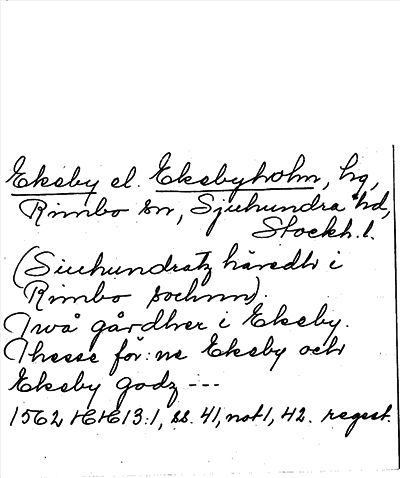 Eksby el. Eksbyholm, hg,
Rimbo sn, Sjuhundra hd,
Stockh. l.
(Siuhundratz häredh i
Rimbo sochnn).
Twå gårdher i Eksby.
Thesse för:ne Eksby och
Eksby godz ---
1562 HH 13:1, ss. 41, not 1, 42. regest.